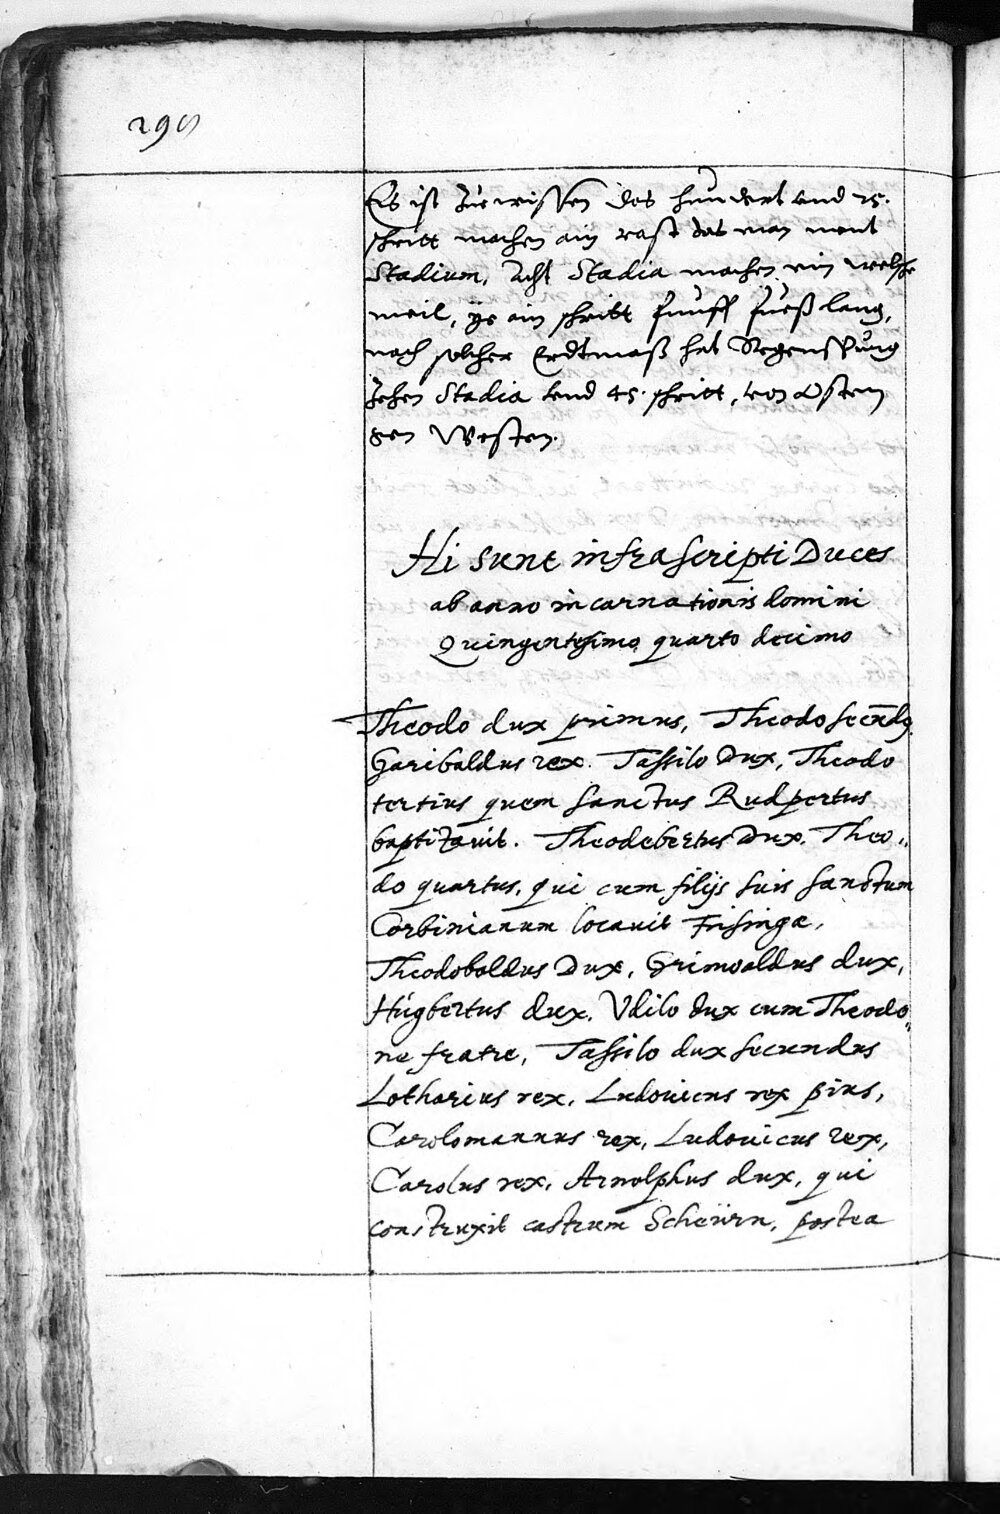 290
Es ist Zue wissen das hundert vnd 25.
schritt machen ain rast das man nent
Stadium, Acht Stadia machen ein welsche
meil, ye ain schritt funff fueß lang,
nach solcher Erdtmaß hat Regenspurg
Zehen Stadia vnd 45. schritt, von Osten
gen Westen.
Hi sunt infrascripti Duces
ab anno incarnationis domini
Quingentesimo quarto decimo
Theodo dux primus, Theodo secundus
Garibaldus rex. Tassilo Dux, Theodo
tertius quem sanctus Rudpertus
baptizauit. Theodebertus Dux. Theo„
do quartus, qui cum filijs suis sanctum
Corbinianum locauit Frisingæ,
Theodoboldus Dux, Grimoaldus dux,
Húgbertus dux, Vdilo dux cum Theodo„
ne fratre, Tassilo dux secundus
Lotharius rex, Ludouicus rex pius,
Carolomannus rex, Ludouicus rex,
Carolus rex, Arnolphus dux, qui
construxit castrum Scheiirn, postea